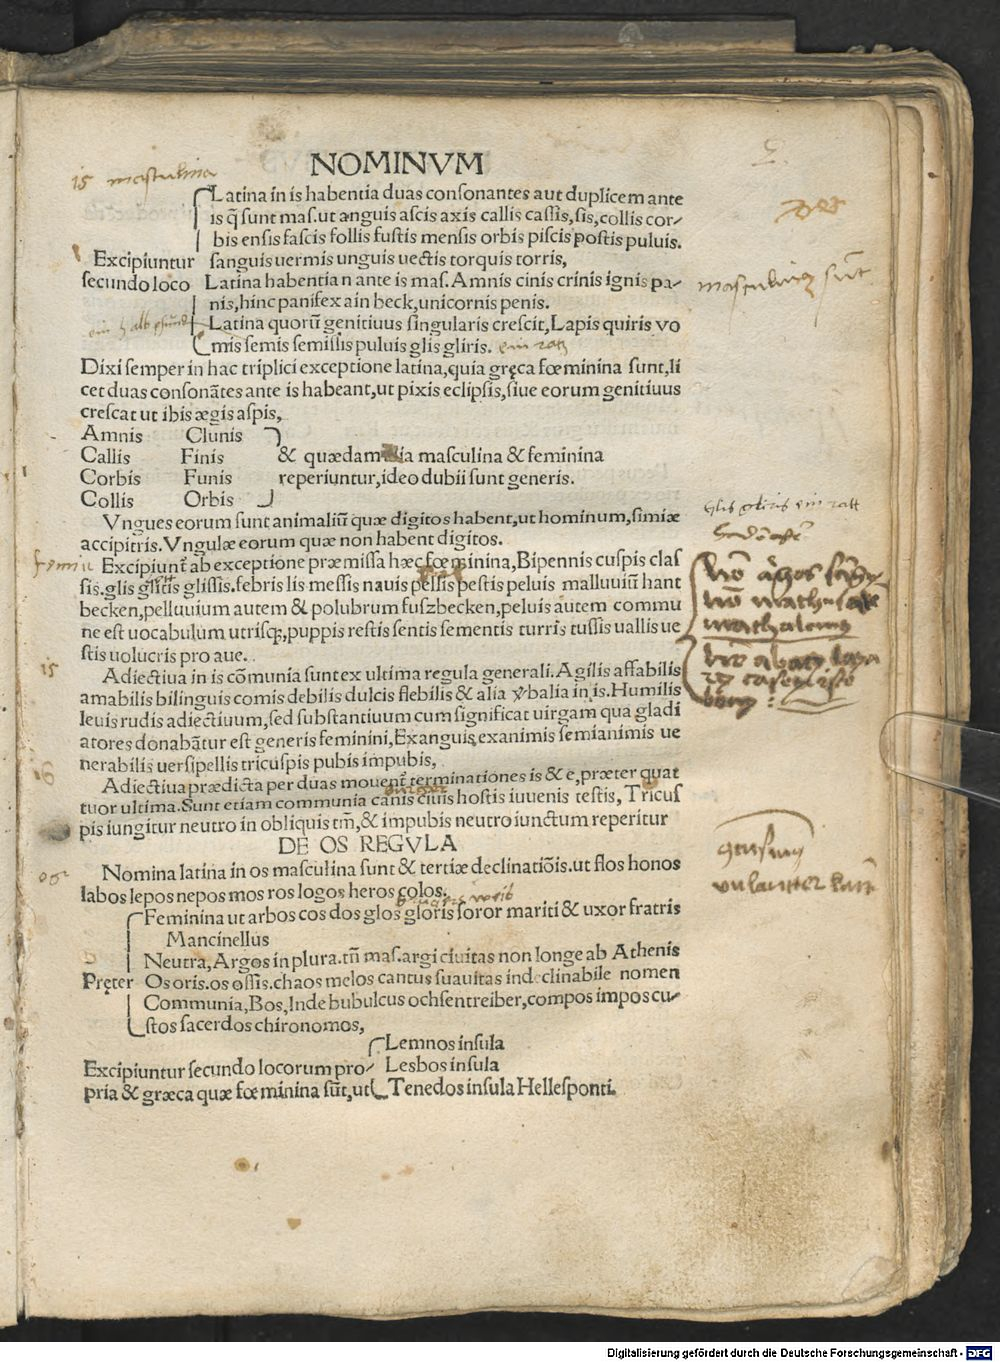 NOMINVM
is masculina
Latina in is habentia duas consonantes aut duplicem ante
is q̃ sunt mas. ut anguis ascis axis callis cassis, sis, collis cor-
bis ensis fascis follis fustis mensis orbis piscis postis puluis.
Excipiuntur sanguis uermis unguis uectis torquis torris,
secundo loco Latina habentia n ante is mas. Amnis cinis crinis ignis pa-
masculina sũt
nis, hinc panifex ain beck, unicornis penis.
Latina quorũ genitiuus singularis crescit, Lapis quiris vo
mis semis semissis puluis glis gliris. ein ratz
Dixi semper in hac triplici exceptione latina, quia gręca fœminina sunt, li
cet duas consonãtes ante is habeant, ut pixis eclipsis, siue eorum genitiuus
crescat ut ibis ægis aspis,
Amnis Clunis
Callis Finis & quædam alia masculina & feminina
Corbis Funis reperiuntur, ideo dubii sunt generis.
Collis Orbis
glis gliris ein ratt
Vngues eorum sunt animaliũ quæ digitos habent, ut hominum, simiæ
accipitris. Vngulæ eorum quæ non habent digitos.
Excipiunt̃ ab exceptione præmissa hæc fœminina, Bipennis cuspis clas
sis. glis glitis glissis. febris lis messis nauis pelsis pestis peluis malluuiũ hant
becken, pelluuium autem & polubrum fuszbecken, peluis autem commu
ne est uocabulum utrisq;, puppis restis sentis sementis turris tussis uallis ue
stis uolucris pro aue.
is
Adiectiua in is cõmunia sunt ex ultima regula generali. Agilis affabilis
amabilis bilinguis comis debilis dulcis flebilis & alia ỽbalia in is. Humilis
leuis rudis adiectiuum, sed substantiuum cum significat uirgam qua gladi
atores donabãtur est generis feminini, Exanguis exanimis semianimis ue
nerabilis uersipellis tricuspis pubis impubis,
Adiectiua prædicta per duas mouent̃ terminationes is & e, præter quat
tuor ultima. Sunt etiam communia canis ciuis hostis iuuenis testis, Tricus
pis iungitur neutro in obliquis tm̃, & impubis neutro iunctum reperitur
DE OS REGVLA
os
Nomina latina in os masculina sunt & tertiæ declinatiõis. ut flos honos
labos lepos nepos mos ros logos heros colos.
Feminina ut arbos cos dos glos gloris soror mariti & uxor fratris
Mancinellus
Neutra, Argos in plura. tñ mas. argi ciuitas non longe ab Athenis
Pręter Os oris. os ossis. chaos melos cantus suauitas indeclinabile nomen
Communia, Bos, Inde bubulcus ochsentreiber, compos impos cu-
stos sacerdos chironomos,
Lemnos insula
Excipiuntur secundo locorum pro- Lesbos insula
pria & græca quæ fœminina sũt, ut Tenedos insula Hellesponti.
Digitalisierung gefördert durch die Deutsche Forschungsgemeinschaft - DFG